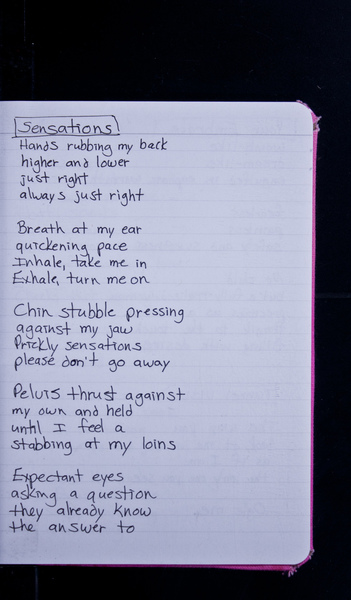 Sensations
Hands rubbing my back
higher and lower
just right
always just right
Breath at my ear
quickening pace
Inhale, take me in
Exhale, turn me on
Chin stubble pressing
against my jaw
Prickly sensations
please don't go away
Pelvis thrust against
my own and held
until I feel a
stabbing at my loins
Expectant eyes
asking a question
they already know
the answer to